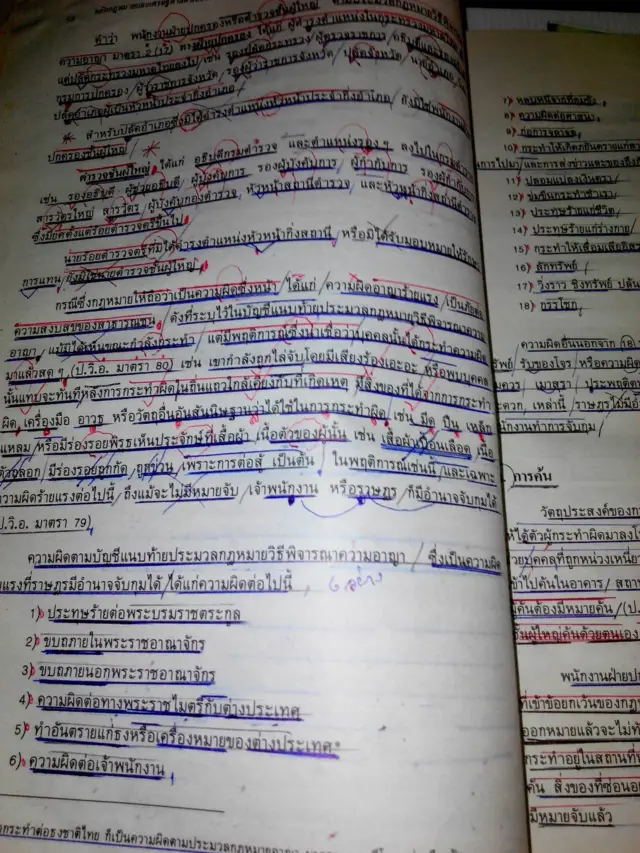 คำว่า พนักงานฝ่ายปกครองหรือตำรวจชั้นผู้ใหญ่
ความอาญา มาตรา 2 (17) ทางฝ่ายปกครอง ได้แก่ ผู้ดำรงตำแหน่งในกระทรวงมหาดไทย
แต่ปลัดกระทรวงมหาดไทยลงไป เช่น รองปลัดกระทรวง ผู้ตรวจราชการ
กรมการปกครอง ผู้ว่าราชการจังหวัด รองผู้ว่าราชการจังหวัด ปลัดจังหวัด นายอำเภอ
ปลัดอำเภอผู้เป็นหัวหน้าประจำกิ่งอำเภอ
* สำหรับปลัดอำเภอซึ่งมิได้ดำรงตำแหน่งหัวหน้าประจำกิ่งอำเภอ ยังมิใช่พนักงาน
ปกครองชั้นผู้ใหญ่
ตำรวจชั้นผู้ใหญ่ ได้แก่ อธิบดีกรมตำรวจ และตำแหน่งรอง ๆ ลงไปในกรมตำรวจ
เช่น รองอธิบดี ผู้ช่วยอธิบดี ผู้บังคับการ รองผู้บังคับการ ผู้กำกับการ รองผู้กำกับการ
สารวัตรใหญ่ สารวัตร ผู้บังคับกองตำรวจ หัวหน้าสถานีตำรวจ และหัวหน้ากิ่งสถานีตำรวจ
ซึ่งมียศตั้งแต่ร้อยตำรวจตรีขึ้นไป
นายร้อยตำรวจตรีที่มิได้ดำรงตำแหน่งหัวหน้ากิ่งสถานี หรือมิได้รับมอบหมายให้รักษา
การแทน ยังมิใช่นายตำรวจชั้นผู้ใหญ่
กรณีซึ่งกฎหมายให้ถือว่าเป็นความผิดซึ่งหน้า ได้แก่ ความผิดอาญาร้ายแรง เป็นภัยต่อ
ความสงบสุขของสาธารณชน ดังที่ระบุไว้ในบัญชีแนบท้ายประมวลกฎหมายวิธีพิจารณาความ
อาญา แม้มิได้เห็นขณะกำลังกระทำ แต่มีพฤติการณ์ซึ่งน่าเชื่อว่าบุคคลนั้นได้กระทำความผิด
มาแล้วสด ๆ (ป.วิ.อ. มาตรา 80) เช่น เขากำลังถูกไล่จับโดยมีเสียงร้องเอะอะ หรือพบบุคคล
นั้นแทบจะทันทีหลังการกระทำผิดในถิ่นแถวใกล้เคียงกับที่เกิดเหตุ มีสิ่งของที่ได้จากการกระทำ
ผิด เครื่องมือ อาวุธ หรือวัตถุอื่นอันสันนิษฐานว่าได้ใช้ในการกระทำผิด เช่น มีด ปืน เหล็ก
แหลม หรือมีร่องรอยพิรุธเห็นประจักษ์ที่เสื้อผ้า เนื้อตัวของผู้นั้น เช่น เสื้อผ้าเปื้อนเลือด เนื้อ
ตัวถลอก มีร่องรอยถูกกัด ถูกข่วน เพราะการต่อสู้ เป็นต้น ในพฤติการณ์เช่นนี้ และเฉพาะ
ความผิดร้ายแรงต่อไปนี้ ถึงแม้จะไม่มีหมายจับ เจ้าพนักงาน หรือราษฎร ก็มีอำนาจจับกุมได้
ป.วิ.อ. มาตรา 79)
ความผิดตามบัญชีแนบท้ายประมวลกฎหมายวิธีพิจารณาความอาญา ซึ่งเป็นความผิด
แรงที่ราษฎรมีอำนาจจับกุมได้ ได้แก่ความผิดต่อไปนี้ 6 อย่าง
1) ประทุษร้ายต่อพระบรมราชตระกูล
2) ขบถภายในพระราชอาณาจักร
3) ขบถภายนอกพระราชอาณาจักร
4) ความผิดต่อทางพระราชไมตรีกับต่างประเทศ
5) ทำอันตรายแก่ธงหรือเครื่องหมายของต่างประเทศ*
6) ความผิดต่อเจ้าพนักงาน
กระทำต่อธงชาติไทย ก็เป็นความผิดตามประมวลกฎหมายอาญา
7) หลบหนีจากที่คุมขัง
8) ความผิดต่อศาสนา
9) ก่อการจลาจล
10) กระทำให้เกิดภยันตรายแก่สาธารณชน
การไปมา และการส่งข่าวและของถึงกัน
11) ปลอมแปลงเงินตรา
12) ข่มขืนกระทำชำเรา
13) ประทุษร้ายแก่ชีวิต
14) ประทุษร้ายแก่ร่างกาย
15) กระทำให้เสื่อมเสียอิสรภาพ
16) ลักทรัพย์
17) วิ่งราว ชิงทรัพย์ ปล้น
18) กรรโชก
ความผิดอื่นนอกจาก
ทรัพย์ รับของโจร หรือความผิด
เมาสุรา ประพฤติ
เหล่านี้ ราษฎรไม่มีอำนาจ
พนักงานทำการจับกุม
การค้น
วัตถุประสงค์ของการ
ให้ได้ตัวผู้กระทำผิดมาลงโทษ
ช่วยบุคคลที่ถูกหน่วงเหนี่ยว
เข้าไปค้นในอาคาร สถาน
ค้นต้องมีหมายค้น (ป.
ชั้นผู้ใหญ่ค้นด้วยตนเอง
พนักงานฝ่าย
ที่เข้าข้อยกเว้นของกฎ
ออกหมายแล้วจะไม่
กระทำอยู่ในสถานที่
ค้น สิ่งของที่ซ่อน
มีหมายจับแล้ว